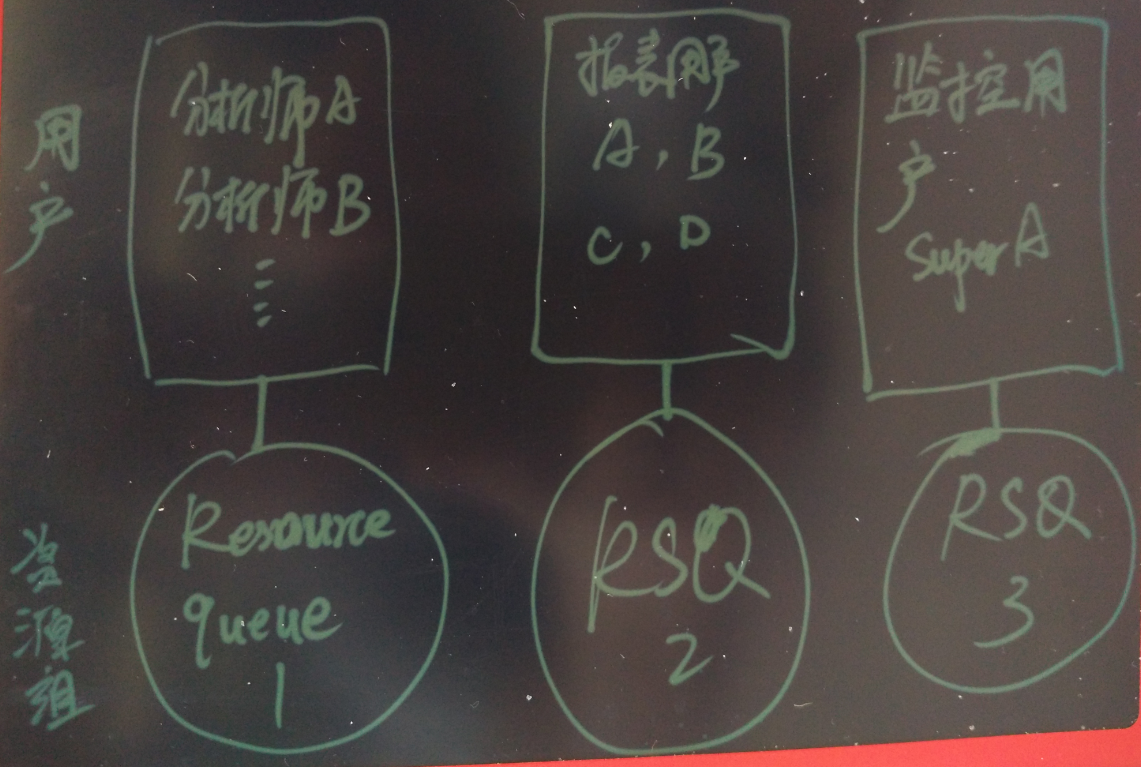 用户
分析师A
分析师B
报表用户
A,B
C,D
监控用
户
SuperA
资源组
Resource
queue
1
RSQ
2
RSQ
3